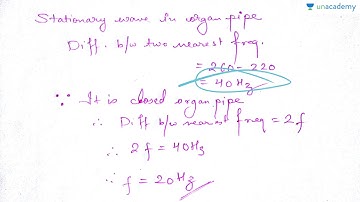 unacademy
Stationary wave in organ pipe
Diff. b/w two nearest freq.
= 260 - 220
= 40 Hz
∵ It is closed organ pipe
∴ Diff b/w nearest freq = 2f
∴ 2f = 40 Hz
∵ f = 20 Hz